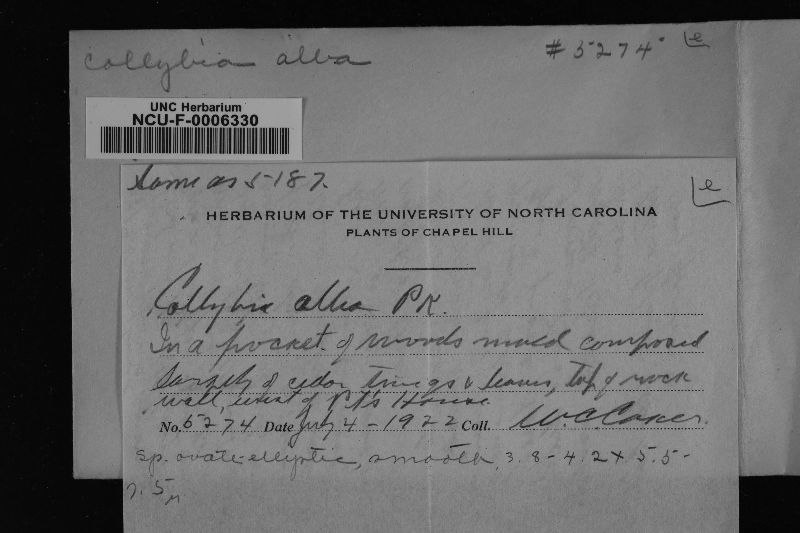 Collybia alba #5274 e
UNC Herbarium
NCU-F-0006330
Same as 5187.
e
HERBARIUM OF THE UNIVERSITY OF NORTH CAROLINA
PLANTS OF CHAPEL HILL
Collybia alba Pk.
In a pocket of woods mold composed
largely of cedar twigs & leaves, top of rock
wall, west of Pt's House
No. 5274 Date July 4-1922 Coll. W.C. Coker.
Sp. ovate-elliptic, smooth, 3.8-4.2 x 5.5-
7.5µ